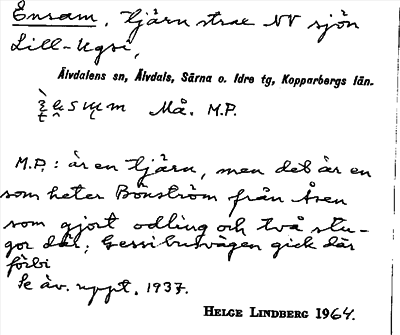 Ensam, tjärn strax NV sjön
Lill-Ugsi,
Älvdalens sn, Älvdals, Särna o. Idre tg, Kopparbergs län.
Må. M.P.
M.P.: är en tjärn, men det är en
som heter Bönström från Åsen
som gjort odling och två stu-
gor där; vägen gick där
förbi
Se äv. uppt. 1937.
HELGE LINDBERG 1964.